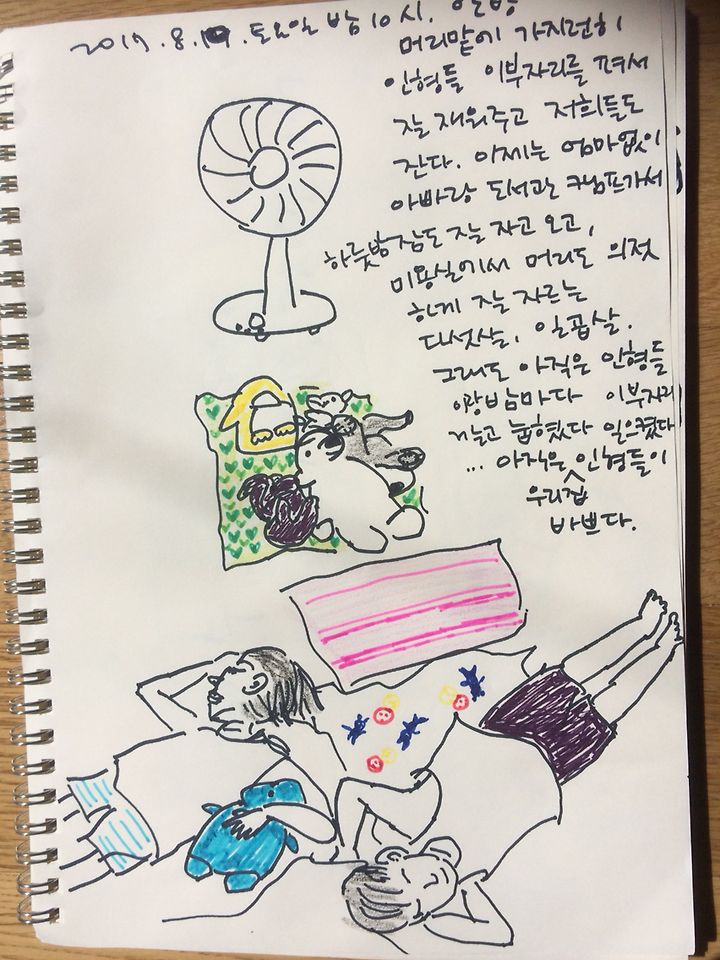 2017.8.19.토요일 밤 10시. 안방
머리맡에 가지런히
인형들 이부자리를 펴서
잘 재워주고 저희들도
잔다. 이제는 엄마없이
아빠랑 도서관 캠프가서
하룻밤 잠도 잘 자고 오고,
미용실에서 머리도 의젓
하게 잘 자르는
다섯살, 일곱살.
그래도 아직은 인형들
이랑 밤마다 이부자리
깔고 눕혔다 일으켰다
... 아직은 우리집 인형들이
바쁘다.